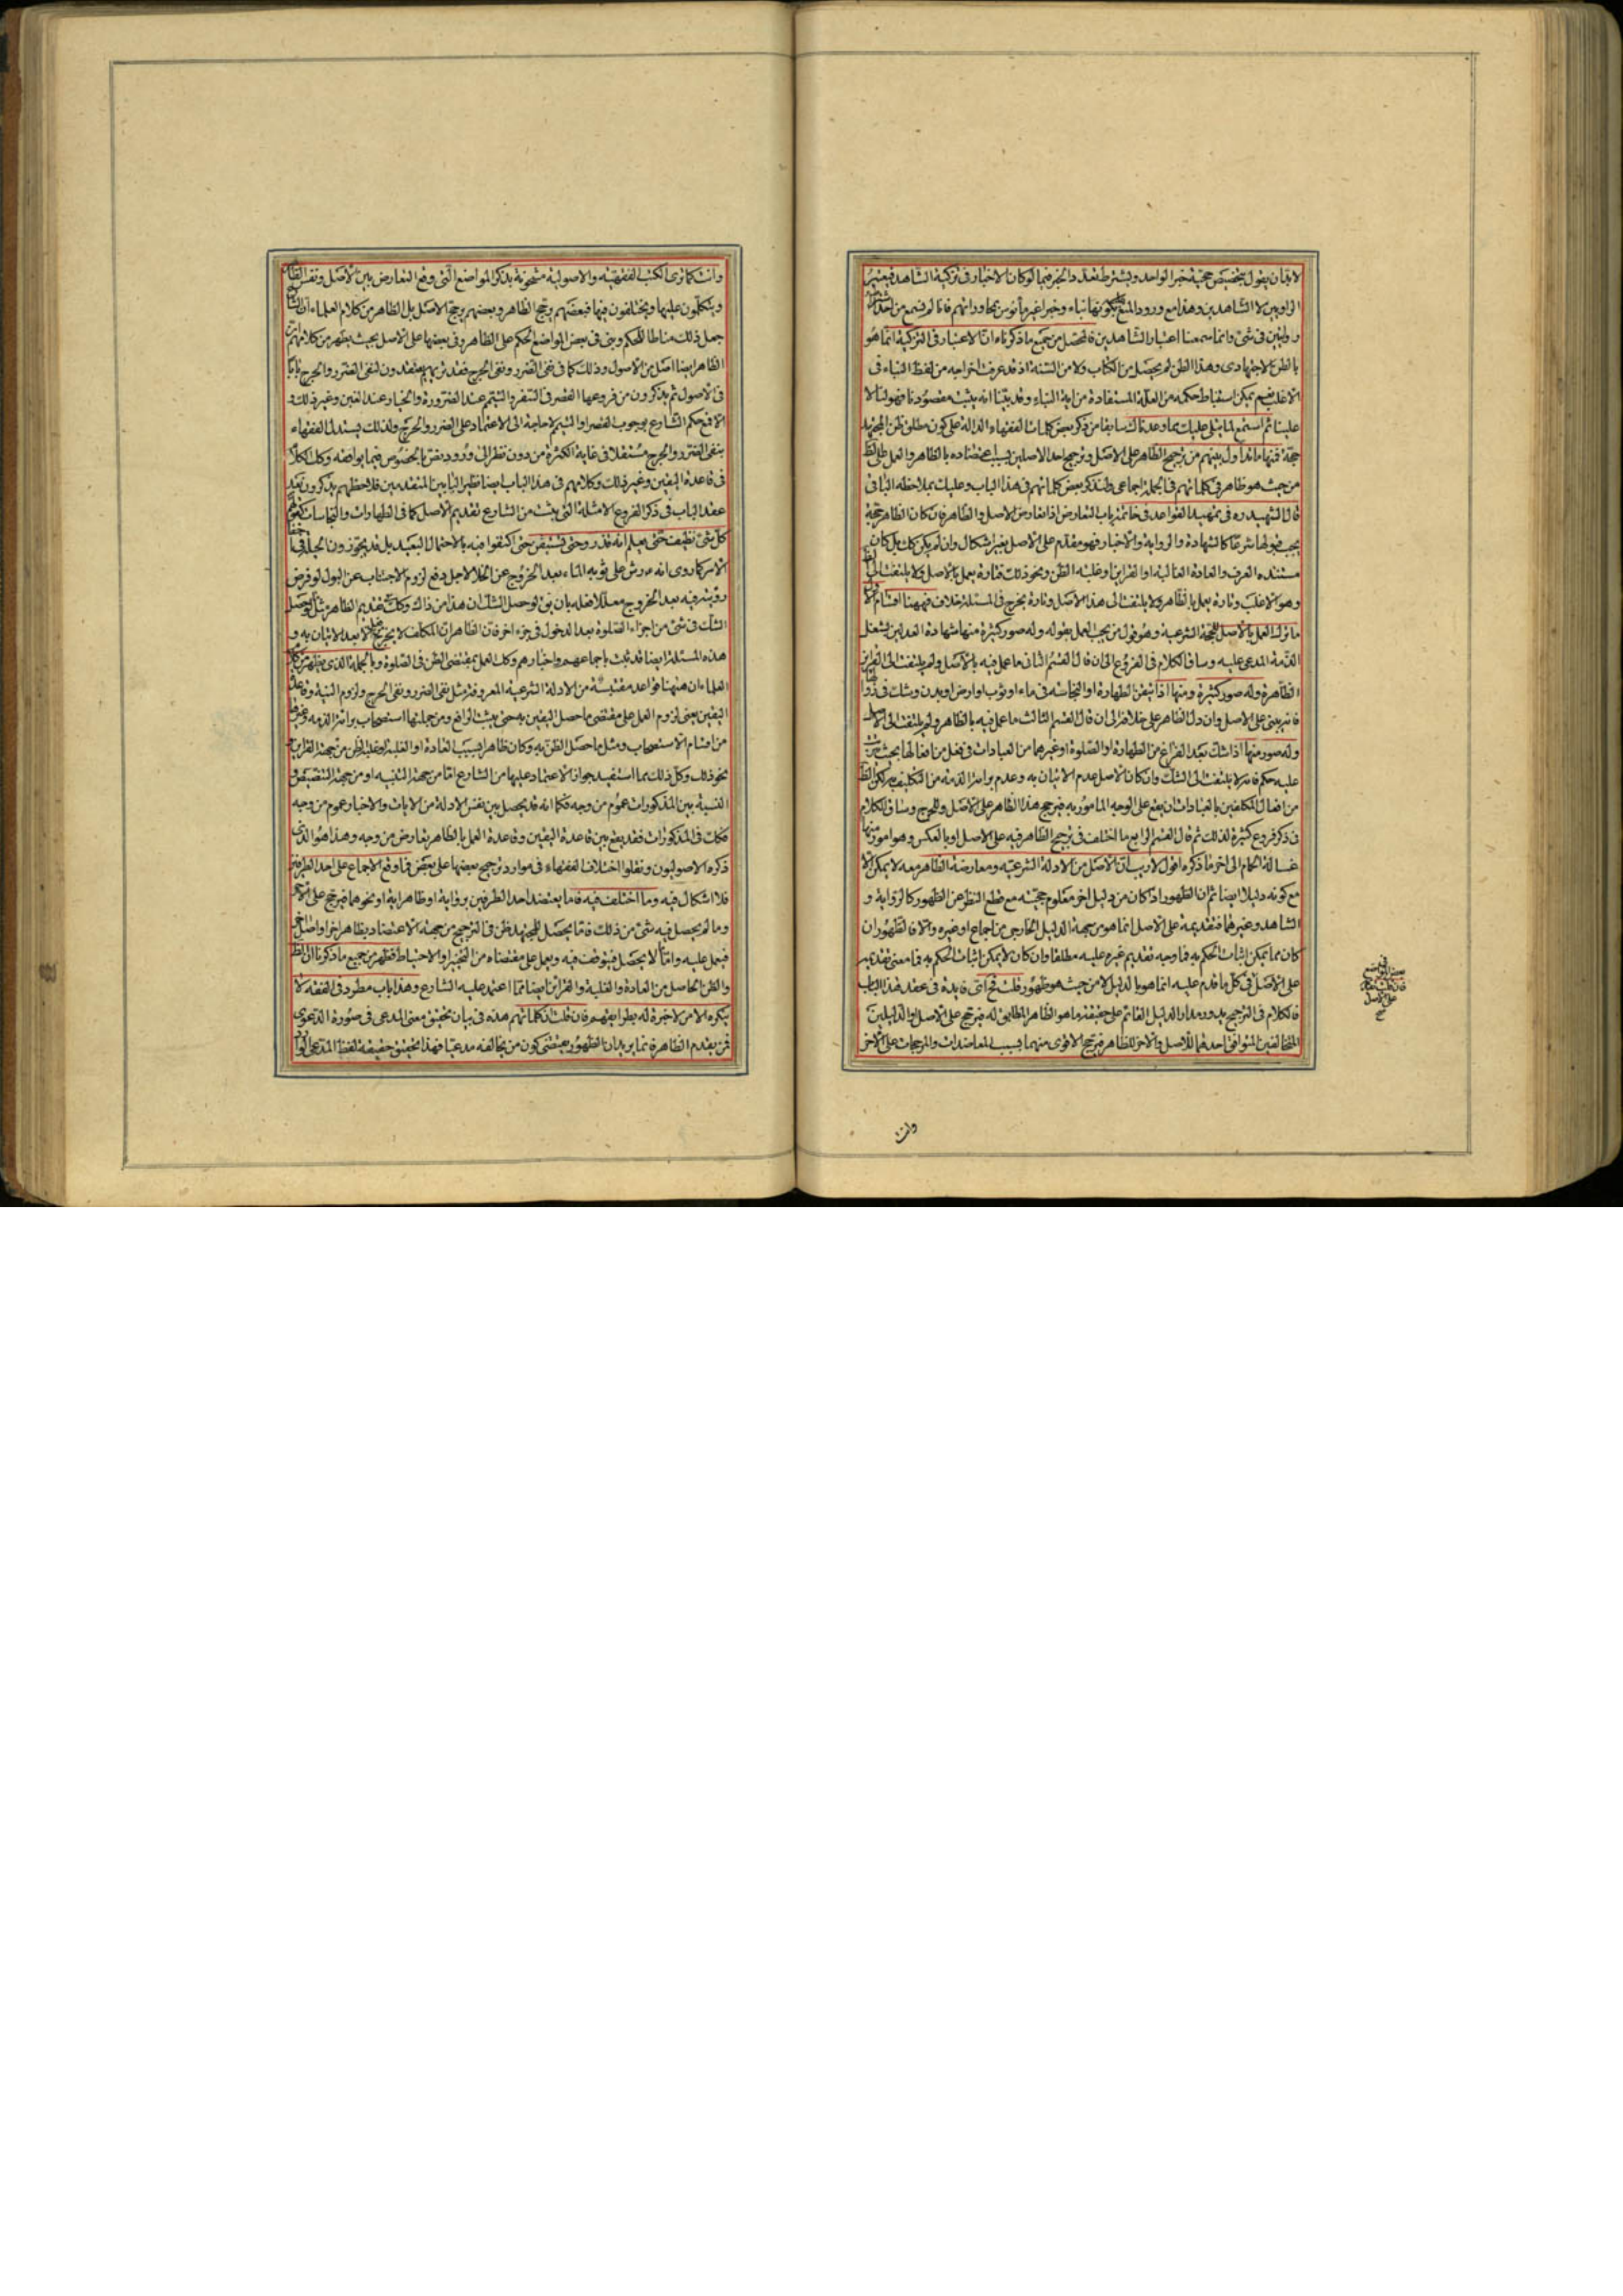 لا بد ان يقول بتخصيص حجية خبر الواحد ويشترط تعدد المخبر فيما لو كان الاخبار فى تزكية الشاهد فيعتبر
الراويين لا الشاهدين وهذا مع ورود المنع بكونها نباء وخبرا غير مأنوس بمحاوراتهم فانا لم نسمع من احد
راويين فى شئ وانما سمعنا اعتبار الشاهدين فالمحصل من جميع ما ذكرناه ان الاعتبار فى التزكية انما هو
بالظن الاجتهادى وهذا الظن لم يحصل من الكتاب ولا من السنة اذ قد عرفت اخراجه من لفظ النباء فى
الاغلب نعم يمكن استنباط حكمه من العلة المستفادة من اية النباء وقد بيّنا انه يثبت مقصودنا فهو لنا لا
علينا ثم استمع لما يتلى عليك مما وعدناك سابقا من ذكر بعض كلمات الفقهاء الدالة على كون مطلق ظن المجتهد
حجة فمنها ما تداول بينهم من ترجيح الظاهر على الاصل وترجيح احد الاصلين بسبب اعتضاده بالظاهر والعمل على الظ
من حيث هو ظاهر فى كلماتهم فى الجملة اجماعى ولنذكر بعض كلماتهم فى هذا الباب وعليك بملاحظة الباقى
قال الشهيد ره فى تمهيد القواعد فى خاتمة باب التعارض اذا تعارض الاصل والظاهر فان كان الظاهر حجة
يجب قبولها شرعا كالشهادة والرواية والاخبار فهو مقدم على الاصل بغير اشكال وان لم يكن كك بل كان
مستنده العرف والعادة الغالبة او القراين او غلبة الظن ونحو ذلك فتارة يعمل بالاصل ولا يلتفت الى الظ
وهو الاغلب وتارة يعمل بالظاهر ولا يلتفت الى هذا الاصل وتارة يخرج فى المسئلة خلاف فههنا اقسام الاول
ما ترك العمل بالاصل للحجة الشرعية وهو قول من يجب العمل بقوله وله صور كثيرة منها شهادة العدلين بشغل
الذمة المدعى عليه وساق الكلام فى الفروع الى ان قال القسم الثانى ما عمل فيه بالاصل ولم يلتفت الى القراين
الظاهرة وله صور كثيرة ومنها اذا تيقن الطهارة او النجاسة فى ماء او ثوب او ارض او بدن وشك فى زوالها
فانه يبنى على الاصل وان دل الظاهر على خلافه الى ان قال القسم الثالث ما عمل فيه بالظاهر ولم يلتفت الى الاصل
وله صور منها اذا شك بعد الفراغ من الطهارة او الصلوة او غيرهما من العبادات فى فعل من افعالها بحيث يترتب
عليه حكم فانه لا يلتفت الى الشك وان كان الاصل عدم الاتيان به وعدم براءة الذمة من التكليف به لكن الظ
من افعال المكلفين بالعبادات ان يقع على الوجه المامور به فيرجح هذا الظاهر على الاصل وللحرج وساق الكلام
فى ذكر فروع كثيرة لذلك ثم قال القسم الرابع ما اختلف فى ترجيح الظاهر فيه على الاصل او بالعكس وهو امور منها
غسالة الحمام الى اخر ما ذكره اقول لا ريب ان الاصل من الادلة الشرعيه ومعارضة الظاهر معه لا يمكن الا
مع كونه دليلا ايضا ثم ان الظهور اذا كان من دليل اخر معلوم حجيته مع قطع النظر عن الظهور كالرواية و
الشاهد وغيرهما فتقديمه على الاصل انما هو من جهة الدليل الخارجى من اجماع او غيره والا فالظهور ان
كان مما يمكن اثبات الحكم به فما وجه تقديم غيره عليه مطلقا وان كان لا يمكن اثبات الحكم به فما معنى تقديمه
على الاصل فى كل ما قدم عليه انما هو بالدليل لا من حيث هو ظهور قلت فح اى فايدة فى عقد هذا الباب
فالكلام فى الترجيح يدور مدار الدليل القائم على حقيقة ما هو الظاهر المطابق له فيرجح على الاصل او الدليلين
المتخالفين المتوافق احدهما للاصل والاخر للظاهر فيرجح الاقوى منهما بسبب المعاضدات والمرجحات على الاخر
وانت
وانت كما ترى الكتب الفقهية والاصولية مشحونة بذكر المواضع التى وقع التعارض بين الاصل ونفس الظاهر
ويتكلمون عليها ويختلفون فيها فبعضهم يرجح الظاهر وبعضهم يرجح الاصل بل الظاهر من كلام العلماء ان الشارع
جعل ذلك مناطا للحكم وبنى فى بعض المواضع الحكم على الظاهر وفى بعضها على الاصل بحيث يظهر من كلامهم ان
الظاهر ايضا اصل من الاصول وذلك كما فى نفى الضرر ونفى الحرج فقد تريهم يعقدون لنفى الضرر والحرج بابا
فى الاصول ثم يذكرون من فروعها القصر فى السفر والتيمم عند الضرورة والخيار عند الغبن وغير ذلك و
الا فمع حكم الشارع بوجوب القصر او التيمم لا حاجة الى الاعتماد على الضرر والحرج ولذلك يستدل الفقهاء
بنفى الضرر والحرج مستقلا فى غاية الكثرة من دون نظر الى ورود نص بالخصوص فيما يوافقه وكك الكلام
فى قاعدة اليقين وغير ذلك وكلامهم فى هذا الباب ايضا نظير البابين المتقدمين فلاحظهم يذكرون بعد
عقد الباب فى ذكر الفروع الامثلة التى يثبت من الشارع تقديم الاصل كما فى الطهارات والنجاسات كقوله
كل شئ نظيف حتى يعلم انه قذر وحتى تستيقن حتى اكتفوا فيه بالاحتمال البعيد بل قد يجوزون الحيلة فى اخفاء
الامر كما روى انه ع رش على ثوبه الماء بعد الخروج عن الخلا لاجل دفع لزوم الاجتناب عن البول لو فرض
رؤيته فيه بعد الخروج معللا فعله بان بق لو حصل الشك ان هذا من ذاك وكك تقديم الظاهر مثل لو حصل
الشك فى شئ من اجزاء الصلوة بعد الدخول فى جزء اخر فان الظاهر ان المكلف لا يخرج الا بعد الاتيان به و
هذه المسئلة ايضا قد ثبت باجماعهم واخبارهم وكك العمل بمقتضى الظن فى الصلوة وبالجملة الذى يظهر من كلام
العلماء ان ههنا قواعد مقتبسة من الادلة الشرعية المعروفة مثل نفى الضرر ونفى الحرج ولزوم البينة وقاعدة
اليقين يعنى لزوم العمل على مقتضى ما حصل اليقين به حتى يثبت الرافع ومن جملتها استصحاب براءة الذمه وغيرها
من اقسام الاستصحاب ومثل ما حصل الظن به وكان ظاهرا بسبب العادة او الغلبة او غلبة الظن من جهة القراين
نحو ذلك وكل ذلك مما استفيد جواز الاعتماد عليها من الشارع اما من جهة التنبيه او من جهة التنصيص و
النسبة بين المذكورات عموم من وجه فكما انه قد يحصل بين نفس الادلة من الايات والاخبار عموم من وجه
فكك فى المذكورات فقد يقع بين قاعدة اليقين وقاعدة العمل بالظاهر تعارض من وجه وهذا هو الذى
ذكره الاصوليون ونقلوا اختلاف الفقهاء فى موارد ترجيح بعضها على بعض فما وقع الاجماع على احد الطرفين
فلا اشكال فيه وما اختلف فيه فاما يعتضد احد الطرفين برواية او ظاهر اية او نحوهما فيرجح على الاخر
وما لم يحصل فيه شئ من ذلك فاما يحصل للمجتهد ظن فى الترجيح من جهة الاعتضاد بظاهر اخر او اصل اخر
فيعمل عليه واما لا يحصل فيتوقف فيه ويعمل على مقتضاه من التخيير او الاحتياط فظهر من جميع ما ذكرنا ان الظ
والظن الحاصل من العادة والغلبة والقراين ايضا مما اعتمد عليه الشارع وهذا باب مطرد فى الفقه لا
ينكره الا من لا خبرة له بطرايقهم فان قلت ان كلماتهم هذه فى بيان تحقيق معنى المدعى فى صورة الدعوى
فمن يقدم الظاهر فانما يريد ان الظهور يقتضى كون من يخالفه مدعيا فهذا تحقيق حقيقة لفظ المدعى الوارد